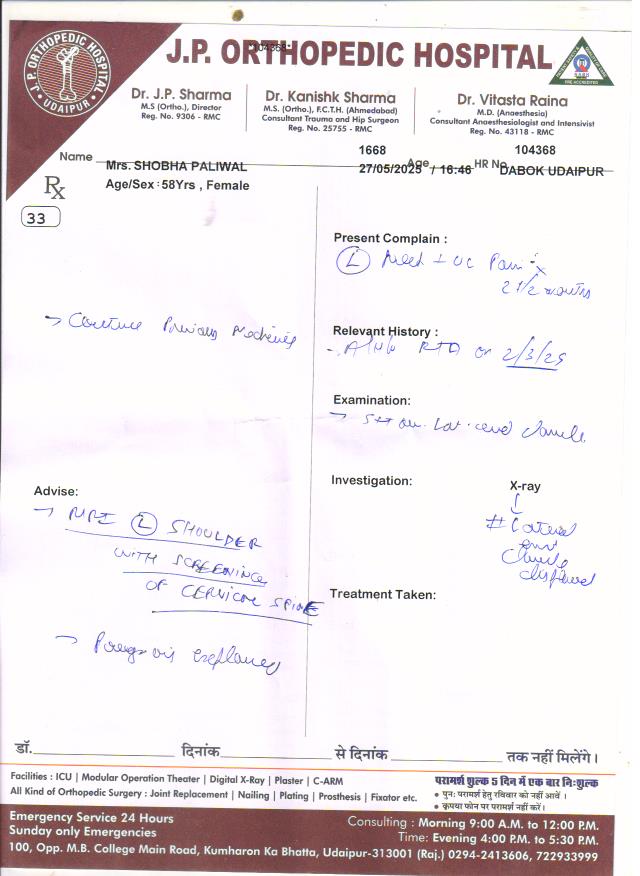 J.P. ORTHOPEDIC HOSPITAL
UDAIPUR
J.P. ORTHOPEDIC HOSPITAL
*104368*
NABH
PRE ACCREDITED
Dr. J.P. Sharma
M.S (Ortho.), Director
Reg. No. 9306 - RMC
Dr. Kanishk Sharma
M.S. (Ortho.), F.C.T.H. (Ahmedabad)
Consultant Trauma and Hip Surgeon
Reg. No. 25755 - RMC
Dr. Vitasta Raina
M.D. (Anaesthesia)
Consultant Anaesthesiologist and Intensivist
Reg. No. 43118 - RMC
1668 104368
Name Mrs. SHOBHA PALIWAL 27/05/2025 / 16:46 Age HR No. DABOK UDAIPUR
Age/Sex : 58Yrs , Female
Rx
33
Present Complain :
(L) Pain
2 1/2 months
→ Previous Medicines
Relevant History :
RTA on 2/3/25
Examination:
→ Lat. end
Investigation:
X-ray
↓
# Lateral
end
displaced
Advise:
→ MRI (L) SHOULDER
WITH SCREENING
OF CERVICAL SPINE
→ explained
Treatment Taken:
डॉ. दिनांक से दिनांक तक नहीं मिलेंगे।
Facilities : ICU | Modular Operation Theater | Digital X-Ray | Plaster | C-ARM
All Kind of Orthopedic Surgery : Joint Replacement | Nailing | Plating | Prosthesis | Fixator etc.
परामर्श शुल्क 5 दिन में एक बार निःशुल्क
• पुनः परामर्श हेतु रविवार को नहीं आवें ।
• कृपया फोन पर परामर्श नहीं करें।
Emergency Service 24 Hours
Sunday only Emergencies
Consulting : Morning 9:00 A.M. to 12:00 P.M.
Time: Evening 4:00 P.M. to 5:30 P.M.
100, Opp. M.B. College Main Road, Kumharon Ka Bhatta, Udaipur-313001 (Raj.) 0294-2413606, 722933999